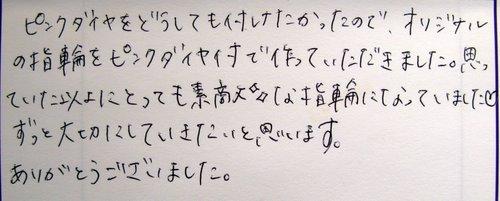 ピンクダイヤをどうしても付けたかったので、オリジナル
の指輪をピンクダイヤ付で作っていただきました。思っ
ていた以上にとっても素商な指輪になっていました♡
ずっと大切にしていきたいと思います。
ありがとうございました。